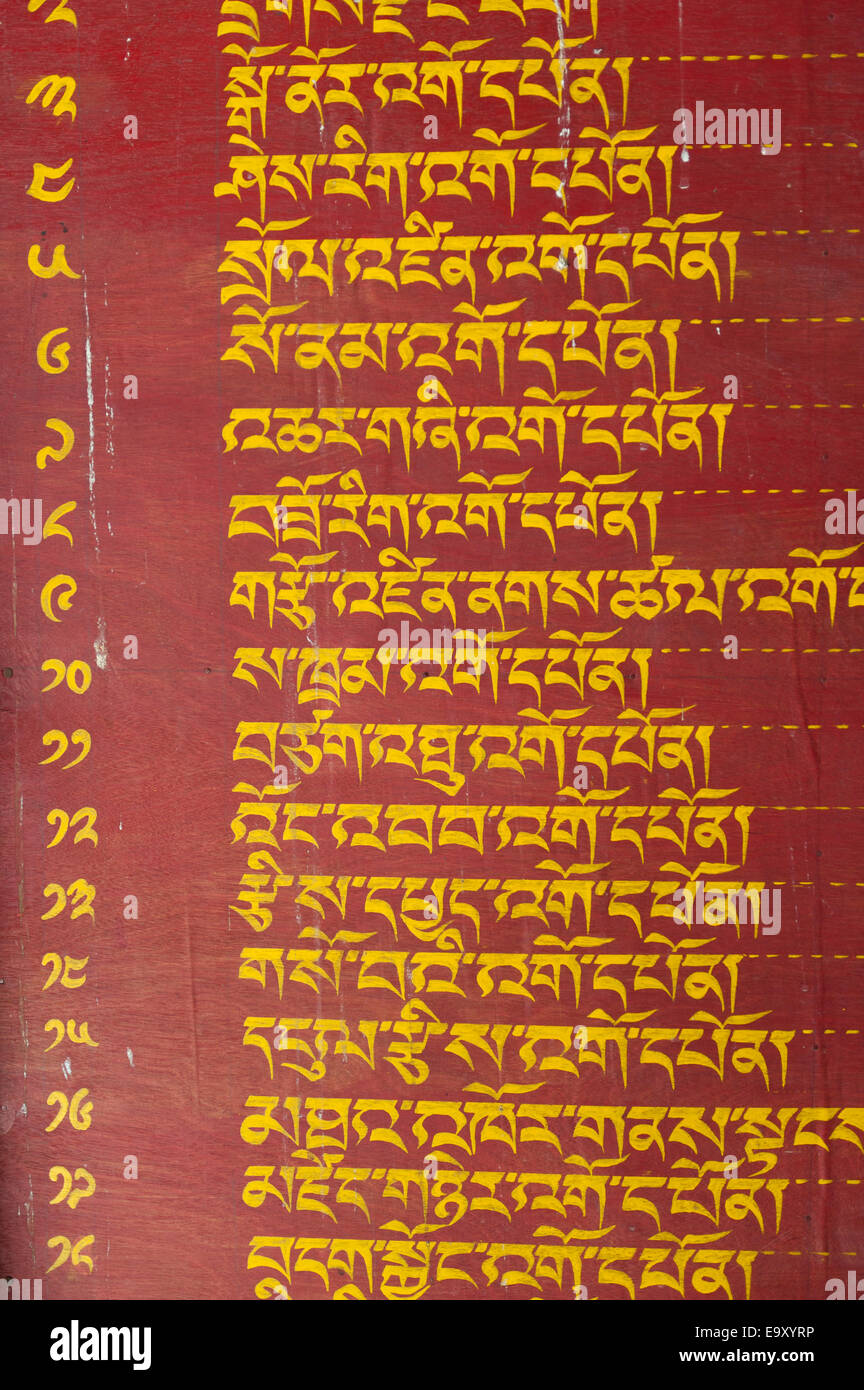 ༢
༣ སྒོ་ནོར་འགོ་དཔོན།
༤ ཤེས་རིག་འགོ་དཔོན།
༥ སྲོལ་འཛིན་འགོ་དཔོན།
༦ སོ་ནམ་འགོ་དཔོན།
༧ འཆར་གཞི་འགོ་དཔོན།
༨ བཟོ་རིག་འགོ་དཔོན།
༩ གཙོ་འཛིན་ནགས་ཚལ་འགོ་
༡༠ ས་ཁྲམ་འགོ་དཔོན།
༡༡ བཙག་འཐུ་འགོ་དཔོན།
༡༢ འོང་འབབ་འགོ་དཔོན།
༡༣ རྩིས་དཔྱད་འགོ་དཔོན།
༡༤ གསོ་བའི་འགོ་དཔོན།
༡༥ དངུལ་རྩིས་འགོ་དཔོན།
༡༦ མཐའ་འཁོར་གནས་སྟངས
༡༧ མཛོད་གཉེར་འགོ་དཔོན།
༡༨ བདག་སྐྱོང་འགོ་དཔོན།
alamy stock photo
E9XYRP
www.alamy.com